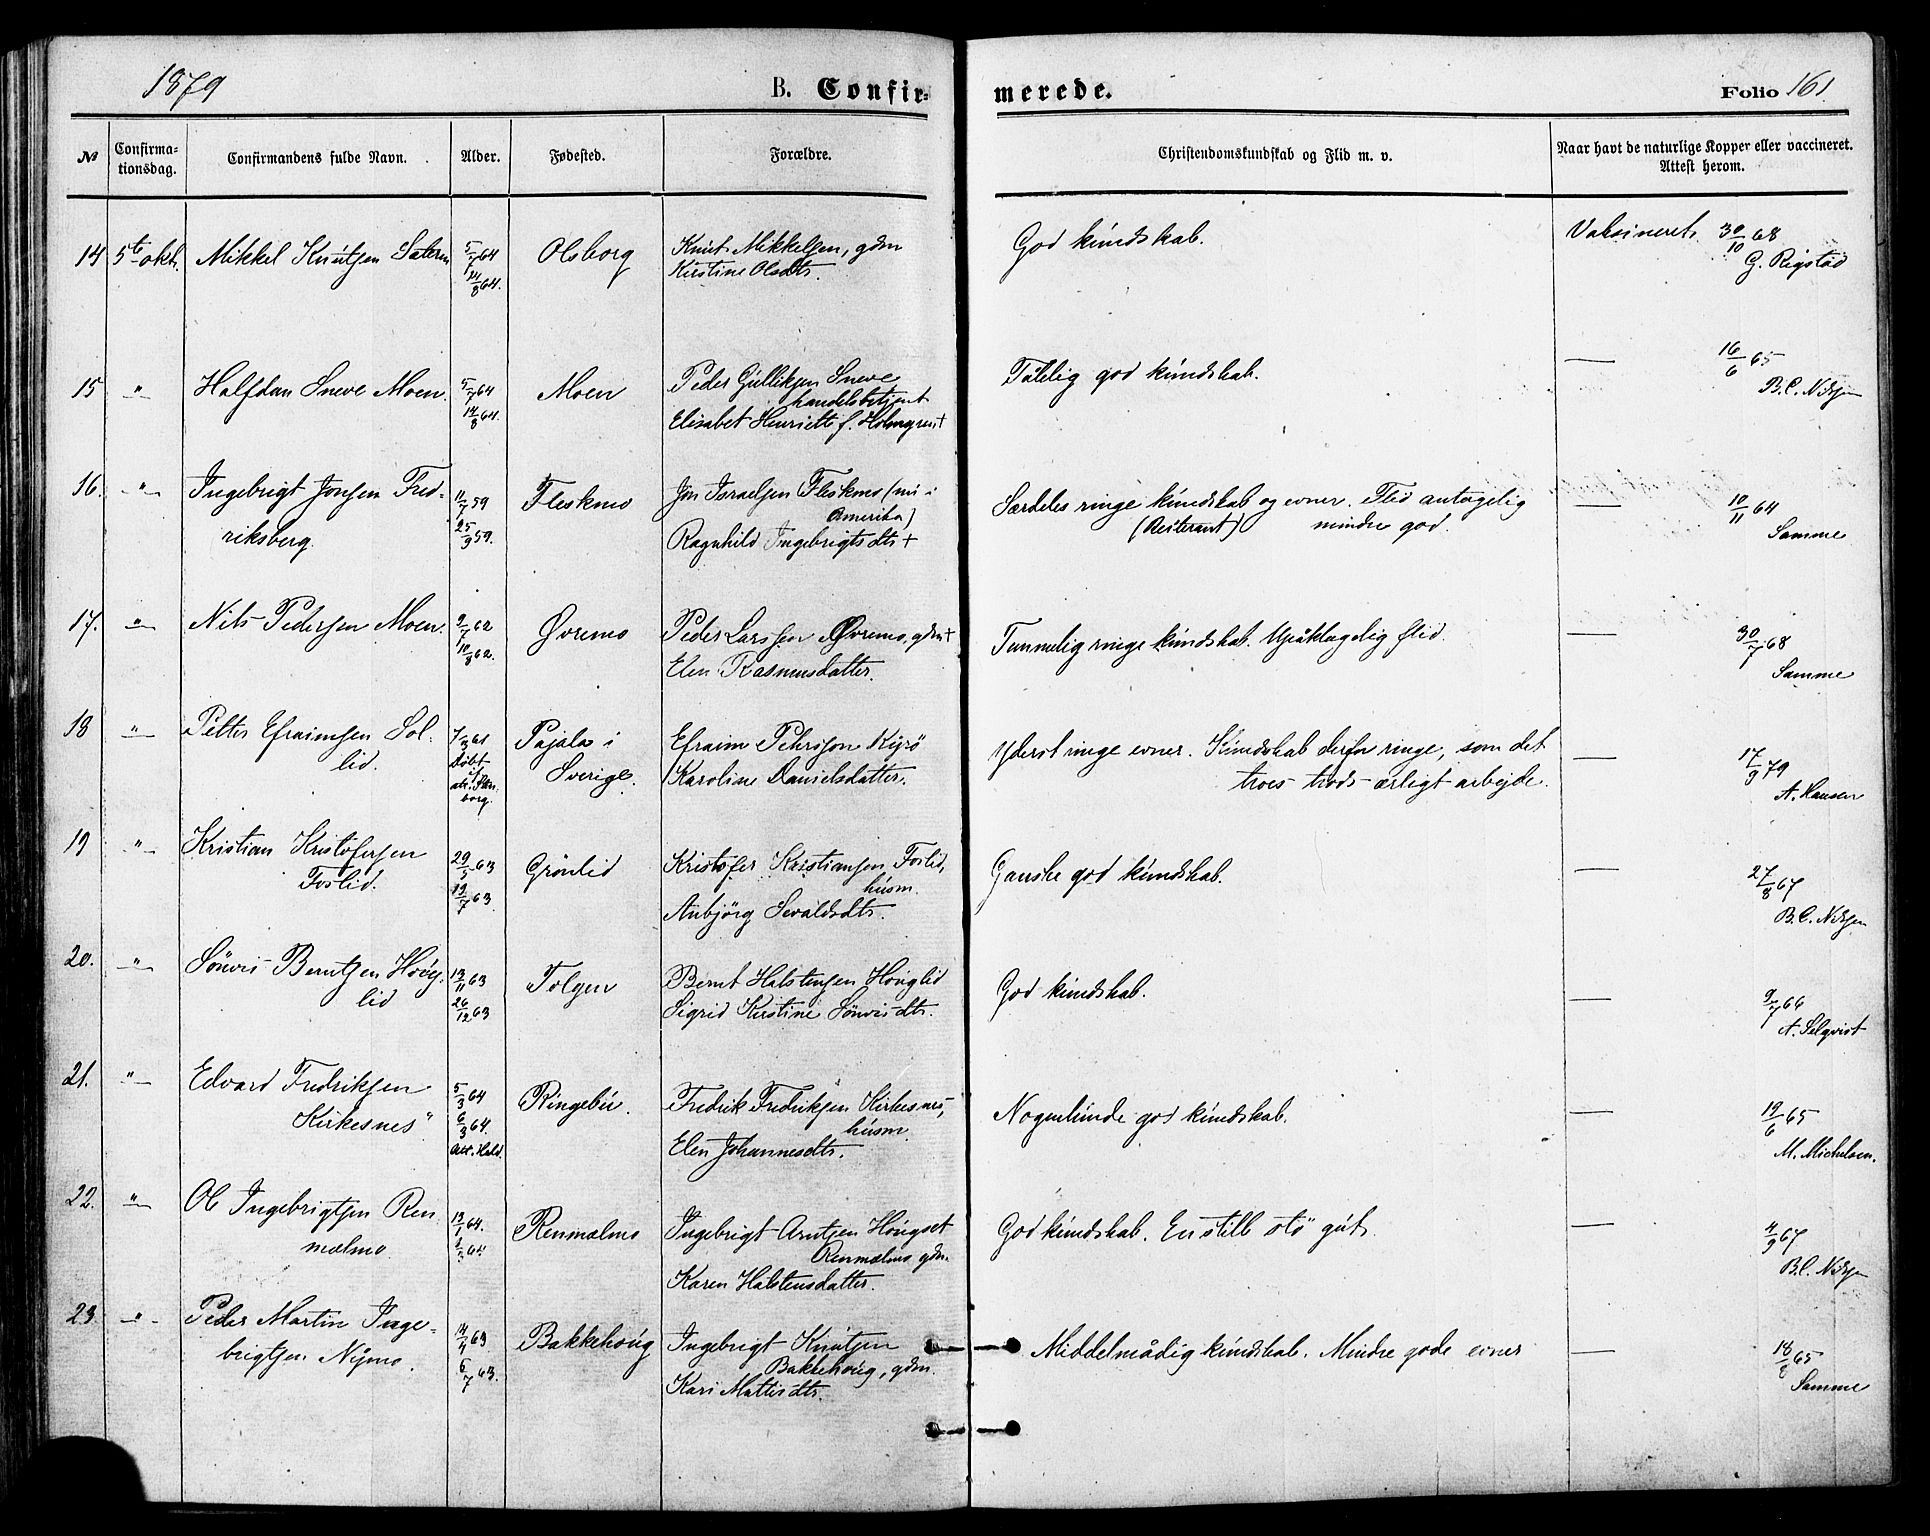 1879
B. Confir-
merede.
Folio 161
№
Confirma-
tionsdag.
Confirmandens fulde Navn.
Alder.
Fødested.
Forældre.
Christendomskundskab og Flid m. v.
Naar havt de naturlige Kopper eller vaccineret.
Attest herom.
14 5te okt. Mikkel Knutsen 5/7 64 Olsborg Knut Mikkelsen, gdm God kundskab. Vaksineret. 30/10 68
14/8 64. Kirstine Olsdtr. G. Rigstad
15 " Halfdan Sneve Moen. 5/7 64 Moen Peder Gulliksen Sneve Tålelig god kundskab. — 16/6 65
14/8 64. handelsbetjent B.C. Nilsen
Elisabet Henriette f. Holmgren +
16. " Ingebrigt Jonsen Fred- 11/7 59 Fleskmo Jon Israelsen Fleskmo (nu i Særdeles ringe kundskab og evner. Flid antagelig — 10/11 64
riksberg. 25/9 59. Amerika) (Resterant) mindre god. Samme
Ragnhild Ingebrigtsdtr +
17. " Nils Pedersen Moen. 9/7 62 Øvremo Peder Larssen Øvremo, gdm + Temmelig ringe kundskab. Upåklagelig flid. — 30/7 68
10/8 62. Elen Rasmusdatter. Samme
18 " Petter Efraimsen Sol- 7/3 61 Pajala i Efraim Pehrsson Kyrö Yderst ringe evner. Kundskab derfor ringe, som det — 17/9 79
lid. Døbt Sverige. Karoline Danielsdatter. troes trods ærligt arbejde. A. Hansen
borg.
19 " Kristian Kristofersen 29/5 63 Grönlid Kristofer Kristiansen Foslid, Ganske god kundskab. — 27/8 67
Foslid. 19/7 63. husm. B.C. Nilsen
Anbjörg Sevaldsdtr.
20. " Sönvis Berntsen Houg- 13/11 63 Tolgen Bernt Halstensen Houglid God kundskab. — 9/7 66
lid 26/12 63 Sigrid Kirstine Sönvisdtr. A. Selqvist
21. " Edvard Fredriksen 5/3 64 Ringebu. Fredrik Fredriksen Kirkesnes, Nogenlunde god kundskab. — 19/6 65
Kirkesnes" 6/3 64. husm. M. Michelsen.
Att. Hald. Elen Johannesdtr.
22. " Ole Ingebrigtsen Ren- 13/1 64. Renmælmo Ingebrigt Arntsen Hougset God kundskab. En still stö gut. — 4/9 67
mælmo. Renmælmo gdm. B.C. Nilsen
Karen Halstensdatter.
23. " Peder Martin Inge- 14/4 63 Bakkehoug Ingebrigt Knutsen Middelmådig kundskab. Mindre gode evner — 18/8 65
brigtsen Nymo. 5/7 63. Bakkehoug, gdm. Samme
Kari Mattisdtr.